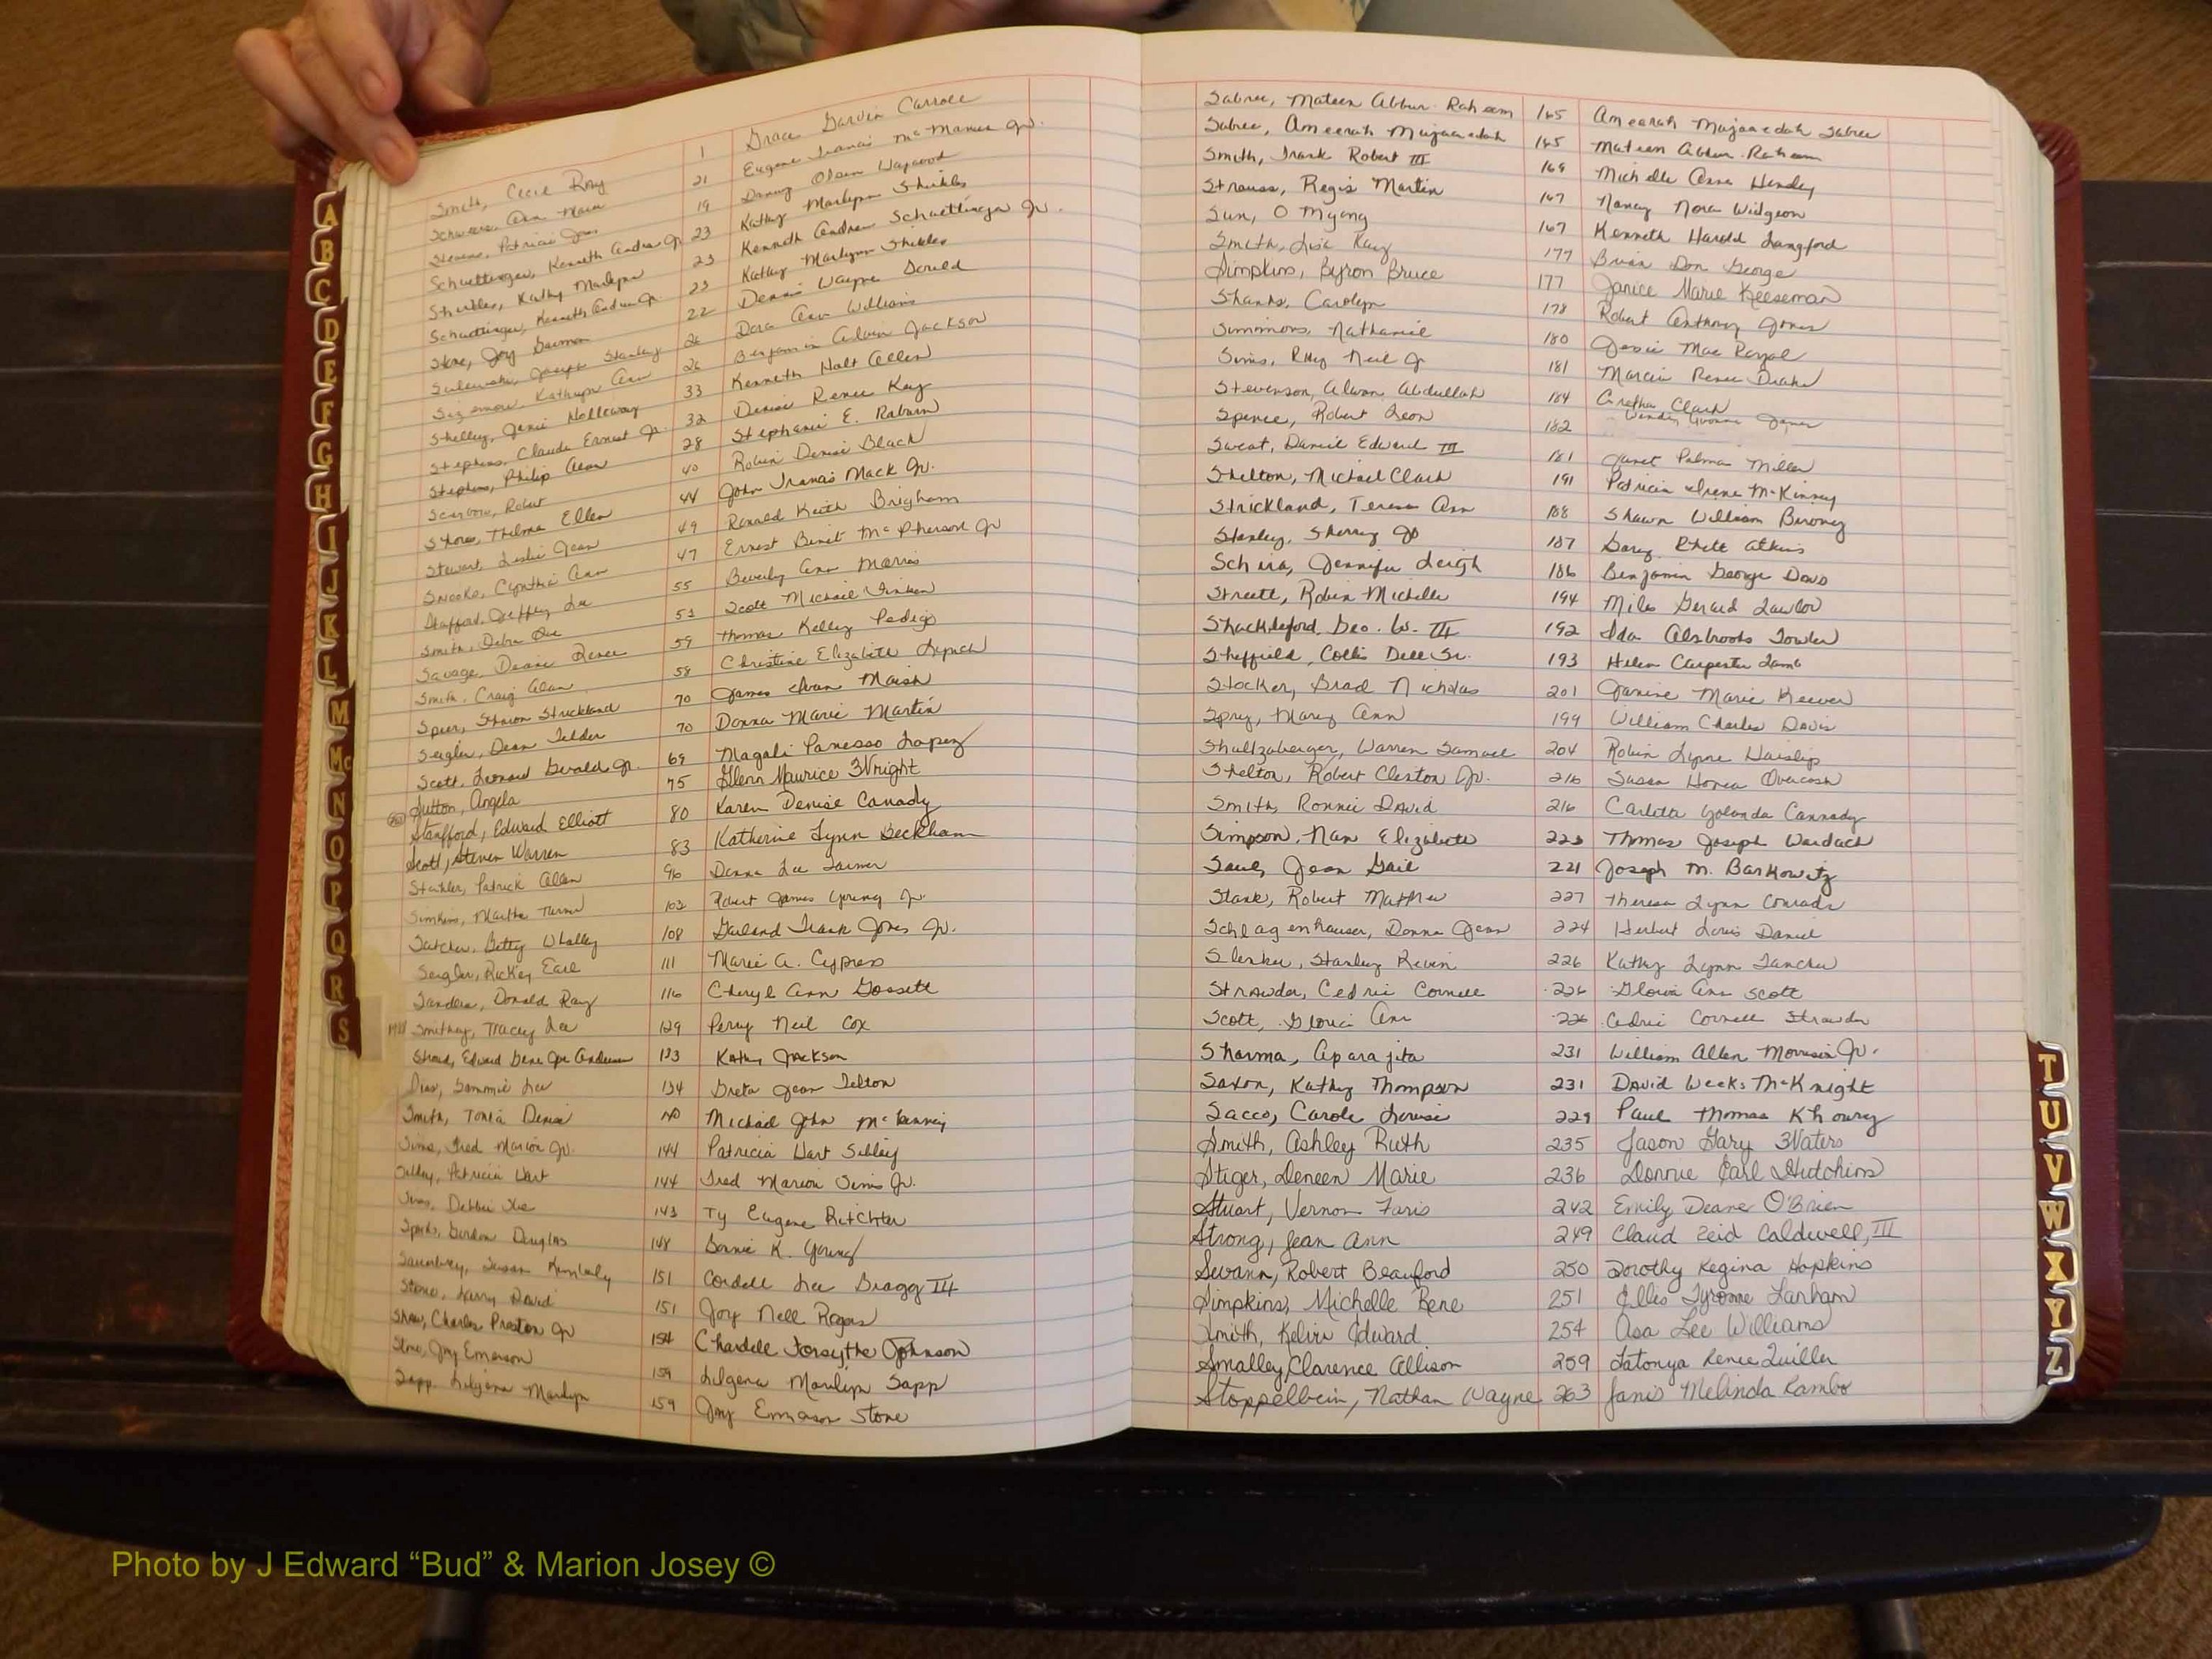 Smith, Cecil Ray 1 Grace Garvin Carroll
Ann Marie 21 Eugene Francis McManus Jr.
Stevens, Patricia Jean 19 Danny Olsen Haywood
Schuettinger, Kenneth Andrew Jr 23 Kathy Marlynn Shirkles
Kathy Marlynn 23 Kenneth Andrew Schuettinger Jr.
Schuettinger, Kenneth Andrew Jr. 23 Kathy Marlynn Shirkles
Stone, Joy 22 Dennis Wayne
Joseph Stanley 26 Dora Ann Williams
Sizemore, Kathryn Ann 26 Benjamin Jackson
Shelley, Janie Holloway 33 Kenneth Holt Allen
Stephens, Claude Ernest Jr. 32 Denise Renee Key
Stephens, Philip Alan 28 Stephanie E. Raburn
Robert 40 Robin Denise Black
Shores, Thelma Ellen 44 John Francis Mack Jr.
Stewart, Leslie Jean 49 Ronald Keith Brigham
Snooks, Cynthia Ann 47 Ernest Benet McPherson Jr
Stafford, Jeffrey Lee 55 Beverly Ann Morris
Smith, Debra Sue 53 Scott Michael
Savage, Deane Renee 59 Thomas Kelley Pedigo
Smith, Craig Alan 58 Christine Elizabeth Lynch
Speer, Sharon Strickland 70 James Ivan Marsh
Seigler, Dean 70 Donna Marie Martin
Scott, Leonard Gerald Jr. 69 Magali Panesso Lopez
Sutton, Angela 75 Glenn Maurice Wright
Stafford, Edward Elliott 80 Karen Denise Canady
Scott, Steven Warren 83 Katherine Lynn Beckham
Patrick Allen 96 Donna Lee
Simkins, Martha Turner 103 Robert James Young Jr.
Satcher, Betty Whatley 108 Garland Frank Jones Jr.
Seigler, Rickey Earl 111 Marie A. Cypress
Sanders, Donald Ray 116 Cheryl Ann Gossett
Smithey, Tracey Lee 129 Perry Neil Cox
Edward Gene 133 Kathy Jackson
Sammie Lee 134 Greta Jean Felton
Smith, Tonia Denise Michael John McKenney
Sims, Fred Marion Jr. 144 Patricia Hart Sibley
Sibley, Patricia Hart 144 Fred Marion Sims Jr.
Debbie Sue 143 Ty Eugene Ritchter
Sparks, Gordon Douglas 148 Bonnie K. Young
Susan Kimberly 151 Cordell Lee Bragg III
Stone, Larry David 151 Joy Nell Rogers
Shaw, Charles Preston Jr 154 Chardell Forsythe Johnson
Stone, Joy Emerson 159 Lilgena Marilyn Sapp
Sapp, Lilgena Marilyn 159 Joy Emerson Stone
Sabree, Mateen Abbur-Raheem 165 Ameerah Mujaaedah Sabree
Sabree, Ameerah Mujaaedah 165 Mateen Abbur-Raheem
Smith, Frank Robert III 169 Michelle Anne Hendey
Strauss, Regis Martin 167 Nancy Nora Widgeon
Sun, O Myong 167 Kenneth Harold Langford
Smith, Lisa Kay 177 Brian Don George
Simpkins, Byron Bruce 177 Janice Marie Keeseman
Shanks, Carolyn 178 Robert Anthony Jones
Simmons, Nathaniel 180 Josie Mae Royal
Sims, Neil Jr 181 Marcia Renee Drake
Stevenson, Alwan Abdullah 184 Aretha Clark
Spence, Robert Leon 182 Yvonne Jones
Sweat, Daniel Edward III 181 Janet Palma Miller
Shelton, Michael Clark 191 Patricia Irene McKinney
Strickland, Teresa Ann 188 Shawn William
Stanley, Sherry Jo 187 Gary Rhett Atkins
Jennifer Leigh 186 Benjamin George Davis
Streett, Robin Michelle 194 Miles Gerard Lawlor
Shackleford, Geo. W. III 192 Ida Alsbrooks Fowler
Sheffield, Collis Dell Sr. 193 Helen Carpenter Lamb
Stocker, Brad Nicholas 201 Janine Marie Keever
Spry, Mary Ann 199 William Charles Davis
Shultzaberger, Warren Samuel 204 Robin Lynne Haislip
Shelton, Robert Clenton Jr. 216 Susan Horea Overcash
Smith, Ronnie David 216 Carlotta Yolanda Cannady
Simpson, Nan Elizabeth 223 Thomas Joseph Wardach
Saul, Jean Gail 221 Joseph M. Barkowitz
Stark, Robert Matthew 227 Theresa Lynn Conrads
Schlagenhauser, Donna Jean 224 Herbert Loris Daniel
Stanley Kevin 226 Kathy Lynn Fancher
Strawder, Cedric Cornell 226 Gloria Ann Scott
Scott, Gloria Ann 226 Cedric Cornell Strawder
Sharma, Aparajita 231 William Allen Morrison Jr.
Saxon, Kathy Thompson 231 David Weeks McKnight
Sacco, Carole Louise 229 Paul Thomas Khoury
Smith, Ashley Ruth 235 Jason Gary Waters
Stiger, Deneen Marie 236 Donnie Earl Hutchins
Stuart, Vernon Faris 242 Emily Deane O'Brien
Strong, Jean Ann 249 Claud Reid Caldwell, III
Swann, Robert Beauford 250 Dorothy Regina Hopkins
Simpkins, Michelle Rene 251 Ellis Tyrone Lanham
Smith, Kelvin Edward 254 Asa Lee Williams
Smalley, Clarence Allison 259 Latonya Renee Quiller
Stoppelbein, Nathan Wayne 263 Janis Melinda Rambo
A
B
C
D
E
F
G
H
I
J
K
L
M
Mc
N
O
P
Q
R
S
T
U
V
W
X
Y
Z
Photo by J Edward “Bud” & Marion Josey ©